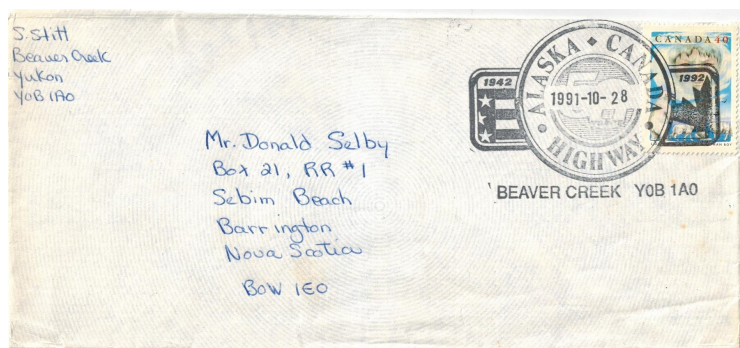 S. Stitt
Beaver Creek
Yukon
Y0B 1A0
CANADA 40
1942
ALASKA • CANADA
1991-10-28
HIGHWAY
1992
BEAVER CREEK Y0B 1A0
Mr. Donald Selby
Box 21, RR #1
Sebim Beach
Barrington
Nova Scotia
B0W 1E0